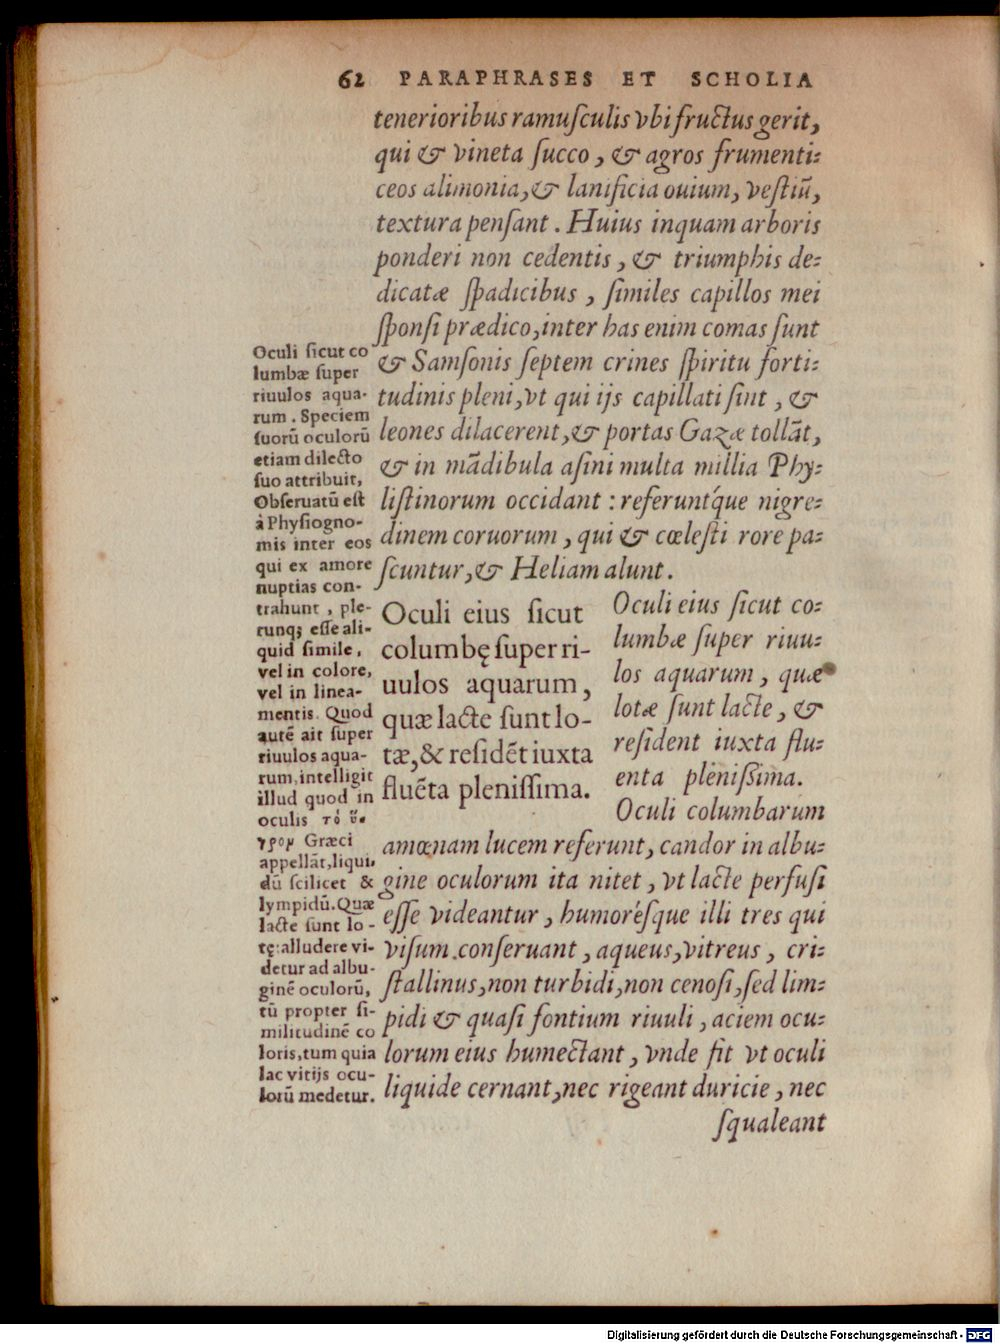 62 PARAPHRASES ET SCHOLIA
tenerioribus ramuſculis vbi fructus gerit,
qui & vineta ſucco, & agros frumenti-
ceos alimonia, & lanificia ouium, veſtiū,
textura penſant. Huius inquam arboris
ponderi non cedentis, & triumphis de-
dicatæ ſpadicibus, ſimiles capillos mei
ſponſi prædico, inter has enim comas ſunt
& Samſonis ſeptem crines ſpiritu forti-
tudinis pleni, vt qui ijs capillati ſint, &
leones dilacerent, & portas Gazæ tollāt,
& in mādibula aſini multa millia Phy-
liſtinorum occidant: referuntq́ue nigre-
dinem coruorum, qui & cœleſti rore pa-
ſcuntur, & Heliam alunt.
Oculi ſicut co
lumbæ ſuper
riuulos aqua-
rum. Speciem
ſuorū oculorū
etiam dilecto
ſuo attribuit,
Obſeruatū eſt
à Phyſiogno-
mis inter eos
qui ex amore
nuptias con-
trahunt, ple-
runq; eſſe ali-
quid ſimile,
vel in colore,
vel in linea-
mentis. Quod
autē ait ſuper
riuulos aqua-
rum, intelligit
illud quod in
oculis τὸ ὕ-
γρον Græci
appellāt, liqui,
dū ſcilicet &
lympidū. Quæ
lacte ſunt lo-
tę: alludere vi-
detur ad albu-
ginē oculorū,
tū propter ſi-
militudinē co
loris, tum quia
lac vitijs ocu-
lorū medetur.
Oculi eius ſicut
columbę ſuper ri-
uulos aquarum,
quæ lacte ſunt lo-
tæ, & reſidēt iuxta
fluēta pleniſſima.
Oculi eius ſicut co-
lumbæ ſuper riuu-
los aquarum, quæ
lotæ ſunt lacte, &
reſident iuxta flu-
enta pleniſsima.
Oculi columbarum
amœnam lucem referunt, candor in albu-
gine oculorum ita nitet, vt lacte perfuſi
eſſe videantur, humoréſque illi tres qui
viſum conſeruant, aqueus, vitreus, cri-
ſtallinus, non turbidi, non cenoſi, ſed lim-
pidi & quaſi fontium riuuli, aciem ocu-
lorum eius humectant, vnde fit vt oculi
liquide cernant, nec rigeant duricie, nec
ſqualeant
Digitalisierung gefördert durch die Deutsche Forschungsgemeinschaft - DFG